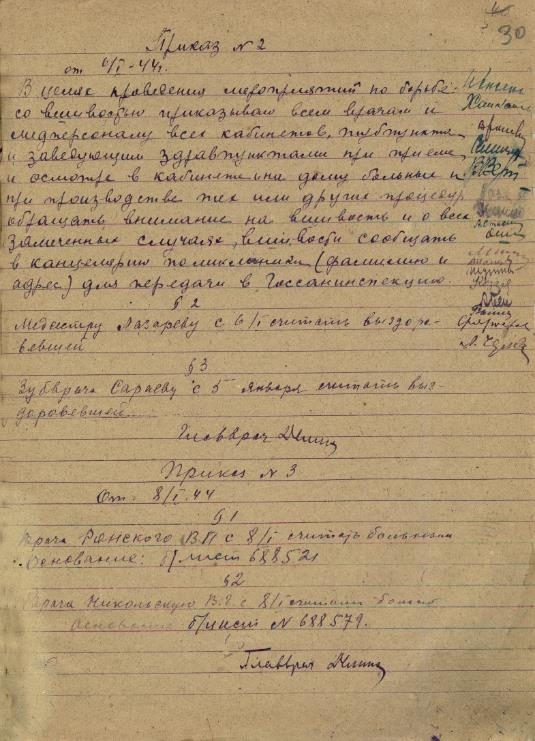 30
Приказ № 2
от 6/I-44г.
В целях проведения мероприятий по борьбе
со вшивостью приказываю всем врачам и
медперсоналу всех кабинетов, пунктам
и заведующим здравпунктами при приеме
и осмотре в кабинете и на дому больных и
при производстве тех или других процедур
обращать внимание на вшивость и о всех
замеченных случаях вшивости сообщать
в канцелярию поликлиники (фамилию и
адрес) для передачи в Госсанинспекцию.
§ 2
Медсестру Лазареву с 6/I считать выздоро-
вевшей
§ 3
Зубврача Сараеву с 5 января считать выз-
доровевшей
Главврач
Приказ № 3
От 8/I-44
§ 1
Врача Ранского В.П с 8/I считать больным
Основание: б/лист 688521
§ 2
Врача Никольскую с 8/I считать больн
Основание б/лист № 688579.
Главврач